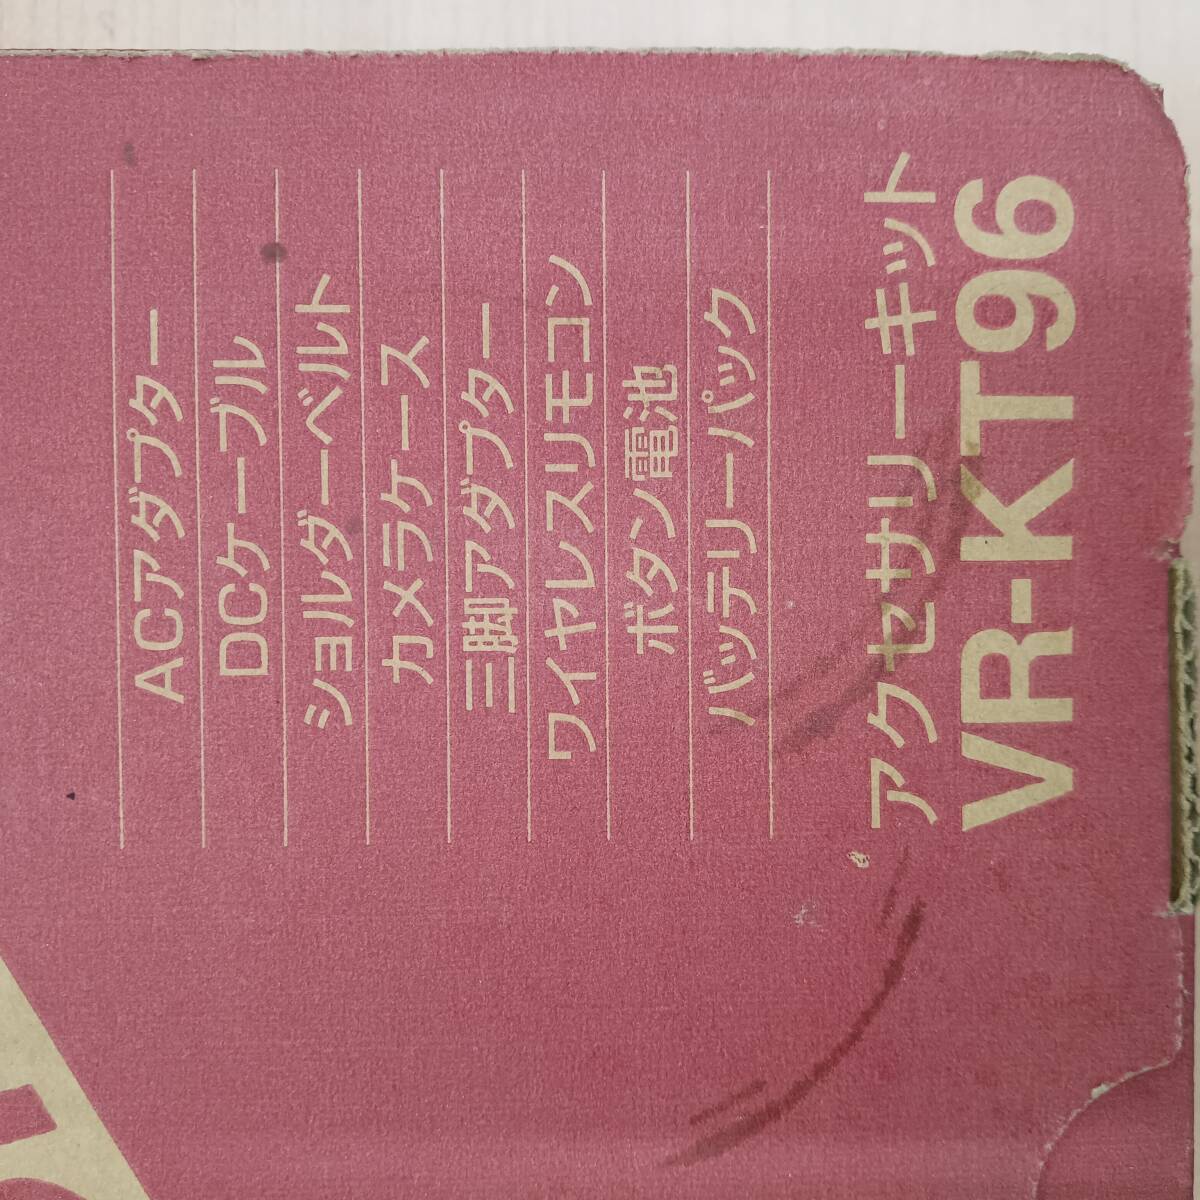 ACアダプター
DCケーブル
ショルダーベルト
カメラケース
三脚アダプター
ワイヤレスリモコン
ボタン電池
バッテリーパック
アクセサリーキット
VR-KT96